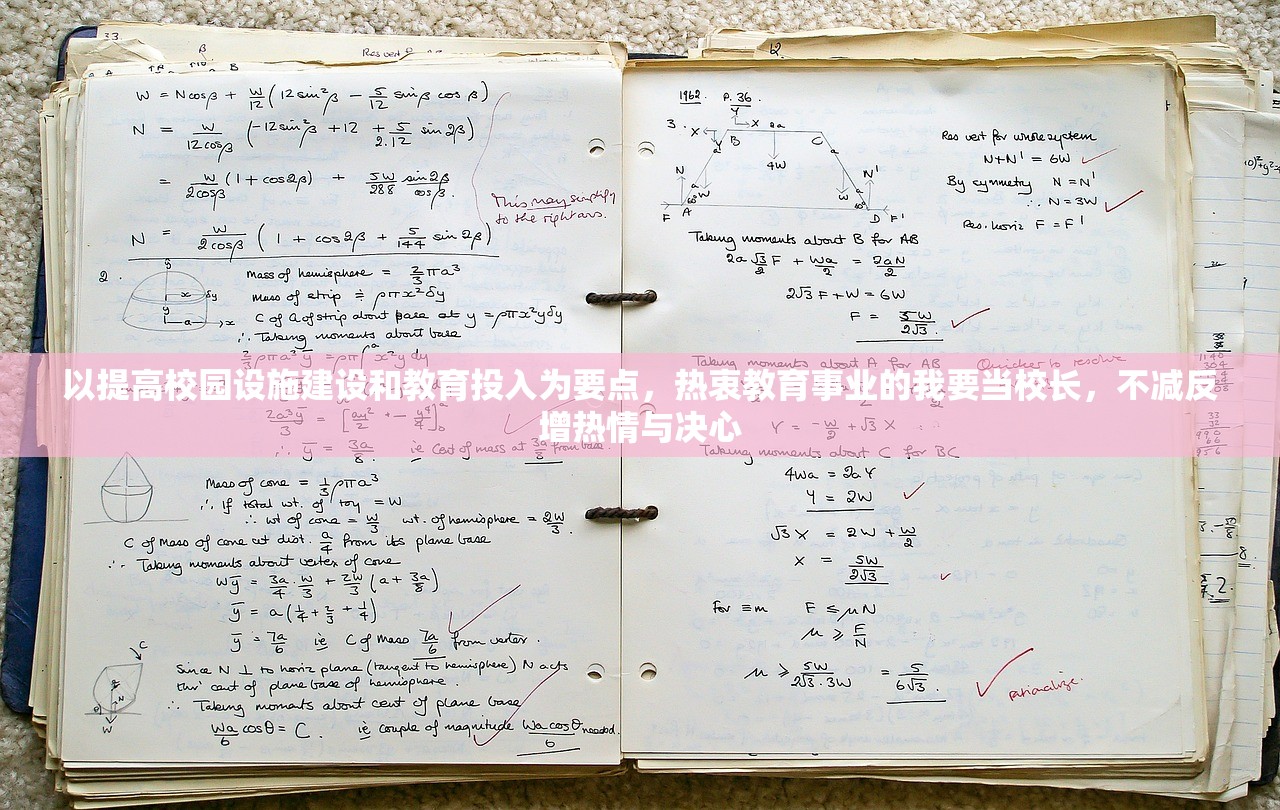 33.
Res vert
W = N cosβ + W/12 (12 sin²β − 5/12 sinβ cosβ)
N = W/12cosβ (-12 sin²β + 12 + 5/2.12 sin 2β)
= W/2cosβ (1 + cos2β) + 5W/288 sin2β/cosβ.
This may simplify
to the right ans.
N = W/2cosβ (1 + cos2β + 5/144 sin 2β)
2.
Mass of hemisphere = 2/3 πa³
mass of strip ≑ ρπx²δy
C of G of strip about base at y = ρπx²yδy
∴ Taking moments about base
2/3 ρπa³ȳ = ρπ∫x²y dy
以提高校园设施建设和教育投入为要点，热衷教育事业的我要当校长，不减反
增热情与决心
∴ ȳ = 3a/8 ie Cent of mass at 3a/8 from base.
Mass of cone = 1/3 ρπa³
∴ If total wt. of toy = W
∴ wt of cone = W/3 wt. of hemisphere = 2W/3.
C of Mass of cone at dist. a/4 from its plane base
∴ Taking moments about vertex of cone
Wȳ = 3a/4 . W/3 + 2W/3 (a + 3a/8)
ȳ = a(1/4 + 2/3 + 1/4)
ȳ = 7a/6 ie C of Mass 7a/6 from vertex.
Since N ⊥ to horiz plane (tangent to hemisphere) N acts
thro' cent of plane base of hemisphere.
∴ Taking moments about cent of plane base
Wa/6 cosθ = C. ie couple of magnitude Wa cosθ/6 needed.
1962. P. 36.
3.
Res vert for whole system
N+N' = 6W
By symmetry N = N'
∴ N = 3W
Res. horiz F = F'
Taking moments about B for AB
2a √3/2 F + Wa/2 = 2aN/2
2√3 F + W = 6W
F = 5W/2√3.
Taking moments about A for AB Quicker to resolve
Y = -W/2 + √3 X
Taking moments about C for BC
4Wa = 2aY
Y = 2W
√3 X = 2W + W/2
X = 5W/2√3
For ≡m F ≤ μN
μ ≥ F/N
μ ≥ 5W/2√3.3W = 5/6√3.
rationalize.